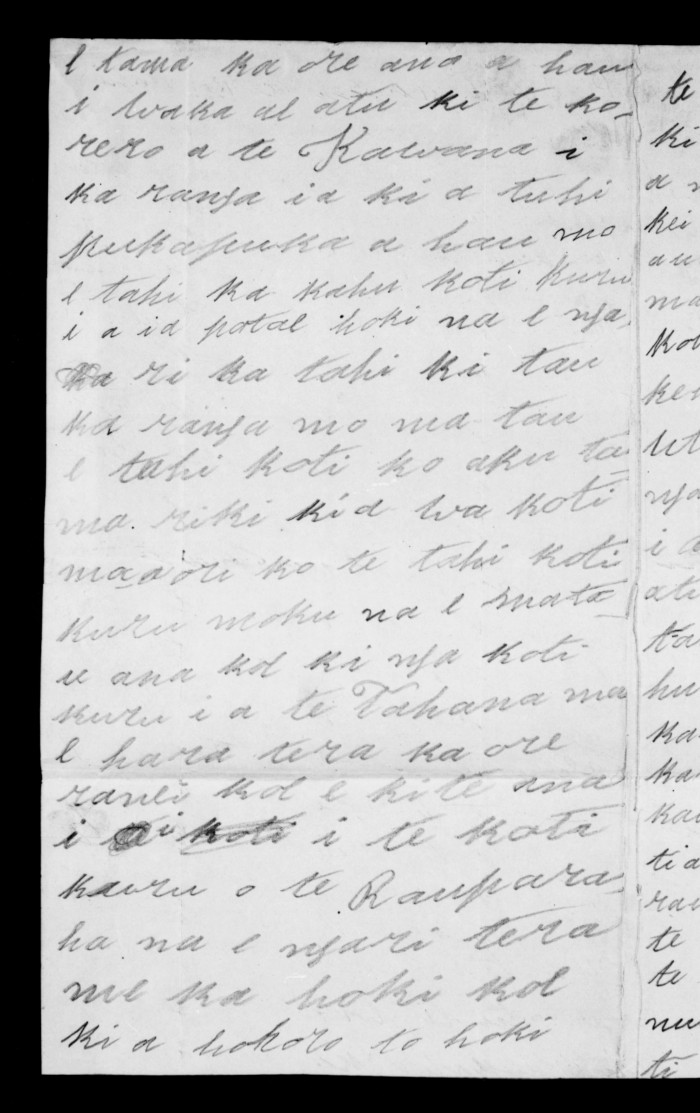 e tama ka ore ana a hau
i waka ae atu ki te ko-
rero a te Kawana i
ka ranga ia ki a tuhi
pukapuka a hau mo
e tahi ka kahu koti kuru
i a ia potae hoki na e nga,
ri ka tahi ki tau
ka ranga mo ma tau
e tahi koti ko aku ta-
ma riki kia wa koti
maaori ko te tahi koti
kuru moku na e mata-
u ana koe ki nga koti
kuru i a te Tahana ma
e hara tera ka ore
ranei koe e kite ana
i i koti i te koti
kuru o te Raupara-
ha na e ngari tera
me ka hoki koe
ki a hohoro to hoki
te
ki
a
kei
au
ma
nga
i
atu
ta
hu
ka
ka
kau
ti a
rau
te
te
nu
ti